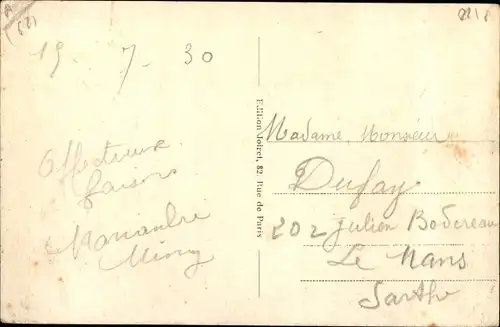 19 - 7 - 30
Affectueux
baisers
Edition Moiret, 82, Rue de Paris
Madame, Monsieur
Dufay
202 Julien Bodereau
Le Mans
Sarthe